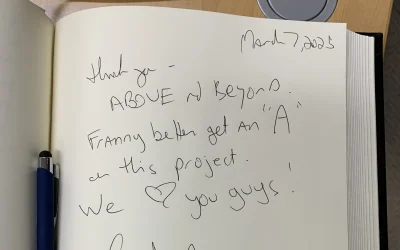 March 7, 2025
thank you -
ABOVE nd Beyond.
Franny better get an "A"
on this project.
We ♡ you guys!